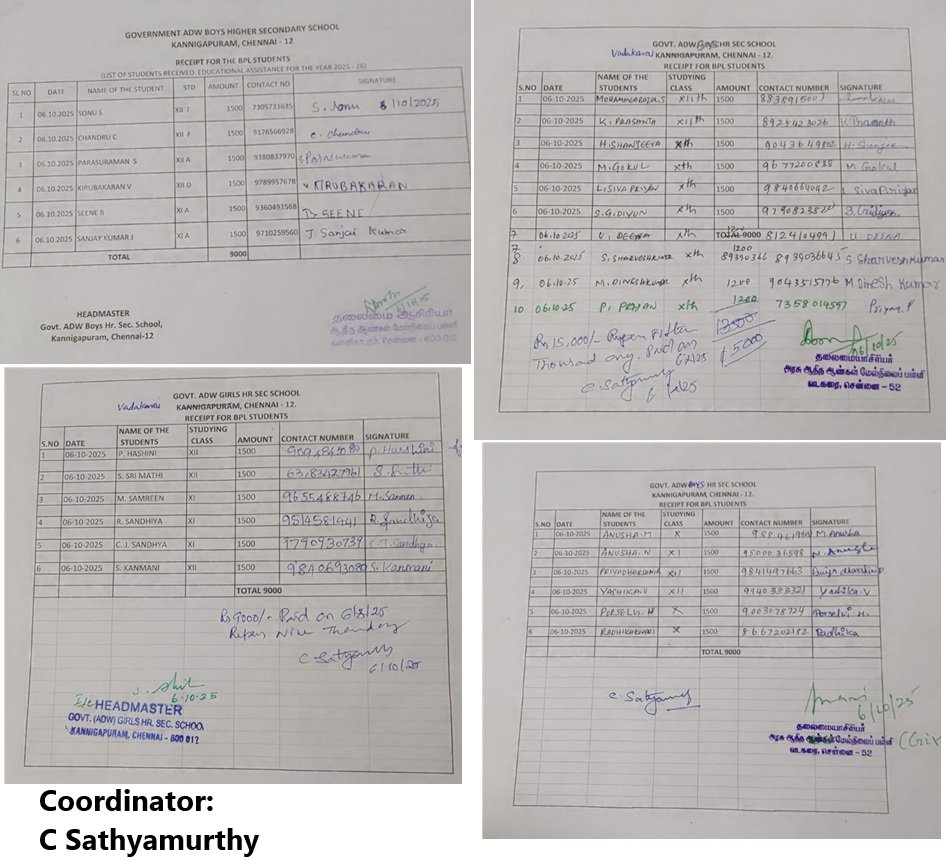 GOVERNMENT ADW BOYS HIGHER SECONDARY SCHOOL
KANNIGAPURAM, CHENNAI - 12
RECEIPT FOR THE BPL STUDENTS
(LIST OF STUDENTS RECEIVED EDUCATIONAL ASSISTANCE FOR THE YEAR 2025 - 26)
SL NO DATE NAME OF THE STUDENT STD AMOUNT CONTACT NO SIGNATURE
1 06.10.2025 SONU S XII F 1500 7305731635 S. Sonu 6/10/2025
2 06.10.2025 CHANDRU C XII F 1500 9176566928 C. Chandru
3 06.10.2025 PARASURAMAN S XII A 1500 9380837970 Parasuraman
4 06.10.2025 KIRUBAKARAN V XII D 1500 9789957678 V KIRUBAKARAN
5 06.10.2025 SEENE B XI A 1500 9360493568 B. SEENE
6 06.10.2025 SANJAY KUMAR J XI A 1500 9710259560 J. Sanjai Kumar
TOTAL 9000
6/10/25
HEADMASTER
Govt. ADW Boys Hr. Sec. School,
Kannigapuram, Chennai-12
தலைமை ஆசிரியர்
GOVT. ADW BOYS HR SEC SCHOOL
Vadakarai KANNIGAPURAM, CHENNAI - 12.
RECEIPT FOR BPL STUDENTS
S.NO DATE NAME OF THE STUDENTS STUDYING CLASS AMOUNT CONTACT NUMBER SIGNATURE
1 06-10-2025 XIIth 1500
2 06-10-2025 K. PRASANTH XIIth 1500 8925423026 K Prasanth
3 06-10-2025 H. SHANJEEVA Xth 1500 9043649802 H. Shanjee
4 06-10-2025 M. GOKUL Xth 1500 9677200838 M. Gokul
5 06-10-2025 L. SIVA PRIYAN Xth 1500 9840664042 L Siva Priyan
6 06-10-2025 Xth 1500
7 06.10.2025 U. DEENA Xth TOTAL 9000 8124104991 U. DEENA
8 06.10.2025 S. SHARVESHKUMAR Xth 1200 8939036645 S. Sharvesh Kumar
9. 06.10.2025 M. DINESHKUMAR Xth 1200 9043515776 M. Dinesh Kumar
10 06.10.25 Xth 1200 7358014557
Rs 15,000/- Rupees Fifteen
Thousand only. Paid on
6/10/25
15000
C. Sathyamurthy
6/10/25
6/10/25
தலைமையாசிரியர்
அரசு ஆதிந ஆண்கள் மேல்நிலைப் பள்ளி
வடகரை, சென்னை - 52
GOVT. ADW GIRLS HR SEC SCHOOL
Vadakarai KANNIGAPURAM, CHENNAI - 12.
RECEIPT FOR BPL STUDENTS
S.NO DATE NAME OF THE STUDENTS STUDYING CLASS AMOUNT CONTACT NUMBER SIGNATURE
1 06-10-2025 P. HASHINI XII 1500 P. Harshini
2 06-10-2025 S. SRI MATHI XII 1500 6378342796
3 06-10-2025 M. SAMREEN XI 1500 9655488746 M. Samreen
4 06-10-2025 R. SANDHIYA XI 1500 9514581441 R. Sandhiya
5 06-10-2025 C. J. SANDHYA XI 1500 9790930739 C.J. Sandhya
6 06-10-2025 S. KANMANI XII 1500 9840693080 S. Kanmani
TOTAL 9000
Rs 9000/- Paid on
Rupees Nine Thousand
C. Sathyamurthy
6/10/25
6.10.25
I/c HEADMASTER
GOVT. (ADW) GIRLS HR. SEC. SCHOOL
KANNIGAPURAM, CHENNAI - 600 012
GOVT. ADW BOYS HR SEC SCHOOL
KANNIGAPURAM, CHENNAI - 12.
RECEIPT FOR BPL STUDENTS
S.NO DATE NAME OF THE STUDENTS STUDYING CLASS AMOUNT CONTACT NUMBER SIGNATURE
1 06-10-2025 ANUSHA.M X 1500 M. Anusha
2 06-10-2025 ANUSHA.N XI 1500 9500036598 N. Anusha
3 06-10-2025 PRIYADHARSHINI XII 1500 9841497663 Priyadharshini
4 06-10-2025 YASHIKA.V XII 1500 9940333321 Yashika.V
5 06-10-2025 PORSELVI.H X 1500 9003078724 Porselvi.H.
6 06-10-2025 X 1500 8667202182 Radhika
TOTAL 9000
C. Sathyamurthy
6/10/25
தலைமையாசிரியர்
அரசு ஆதிந மேல்நிலைப் பள்ளி
வடகரை, சென்னை - 52
Coordinator:
C Sathyamurthy